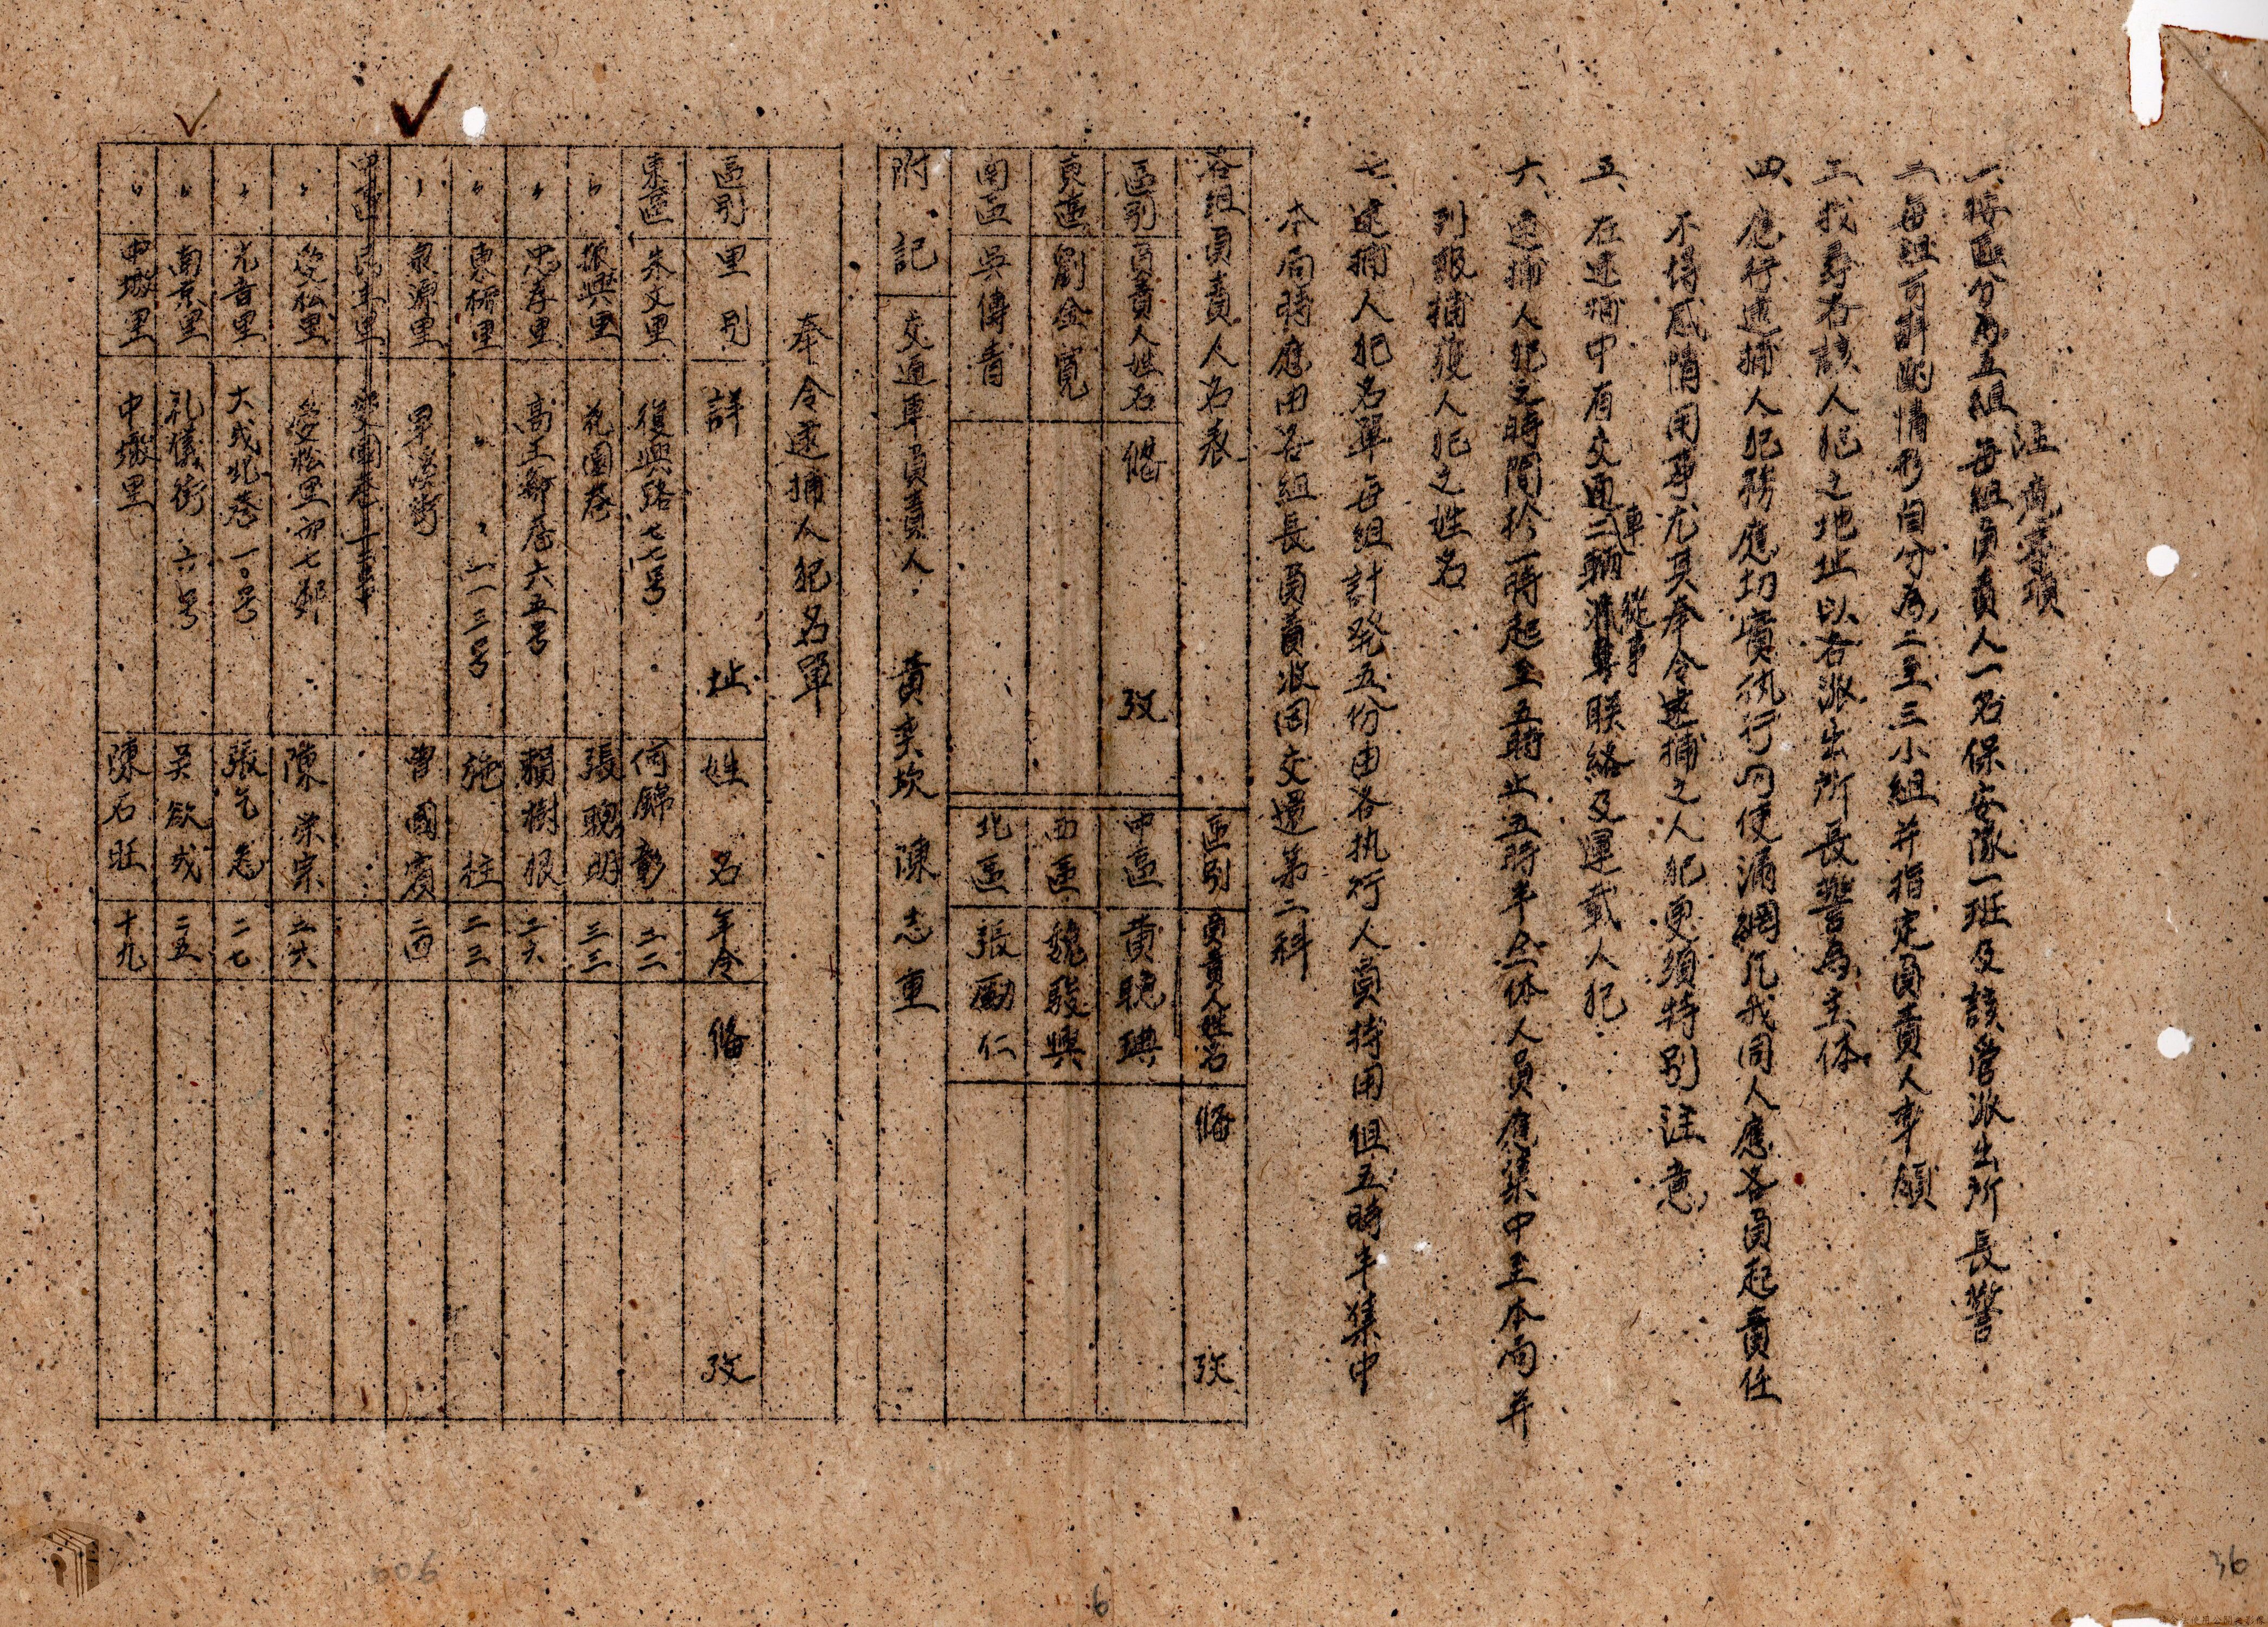 注意事項
一、按區分為五組每組負責人一名保安隊一班及該管派出所長警
二、每組可斟酌情形自分為二至三小組并指定負責人率領
三、找尋各該人犯之地址以各派出所長警為主体
四、應行逮捕人犯務應切實執行勿使漏網凡我同人應各負起責任
不得感情用事尤其奉令逮捕之人犯更須特別注意
五、在逮捕中有交通車二輛從事聯絡及運載人犯
六、逮捕人犯之時間於一時起至五時止五時半全体人員應集中至本局并
列報捕獲人犯之姓名
七、逮捕人犯名單每組計發五份由各执行人員持用但五時半集中
本局時應由各組長負責收回交還第二科
各組負責人名表
區別 負責人姓名 備 攷 區別 負責人姓名 備 攷
東區 劉金寬 中區 黃聰琠
南區 吳傳香 西區 魏駿興
北區 張勵仁
附記 交通車負責人 黃奕坎 陳志重
奉令逮捕人犯名單
區別 里別 詳 址 姓名 年令 備 攷
東區 朱文里 復興路七七号 何錦彰 二二
〃 振興里 花園巷 張聰明 三三
〃 忠孝里 高工鄰巷六五号 賴樹根 二六
〃 東橋里 〃 〃 一一三号 施柱 二三
〃 泉源里 旱溪街 曾國慶 二四
中區 民主里
〃 公館里 七鄰 陳荣宗 二六
〃 光音里 大成北巷一〇号 張乞忽 二七
〃 南京里 礼儀街 六号 吳欲戎 二五
〃 中墩里 中墩里 陳石旺 十九
606
6
36